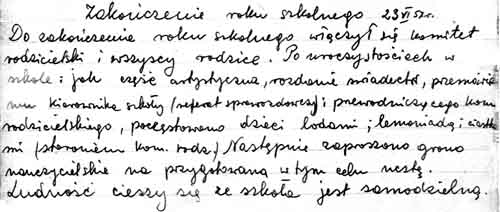 Zakończenie roku szkolnego 23 VI 57r.
Do zakończenia roku szkolnego włączył się komitet
rodzicielski i wszyscy rodzice. Po uroczystościach w
szkole: jak część artystyczna, rozdanie świadectw, przemówie
niu kierownika szkoły /referat sprawozdawczy/ i przewodniczącego kom.
rodzicielskiego, poczęstowano dzieci lodami, lemoniadą i ciastka
mi /staraniem kom. rodz./ Następnie zaproszono grono
nauczycielskie na przygotowaną w tym celu ucztę.
Ludność cieszy się ze szkoła jest samodzielną.